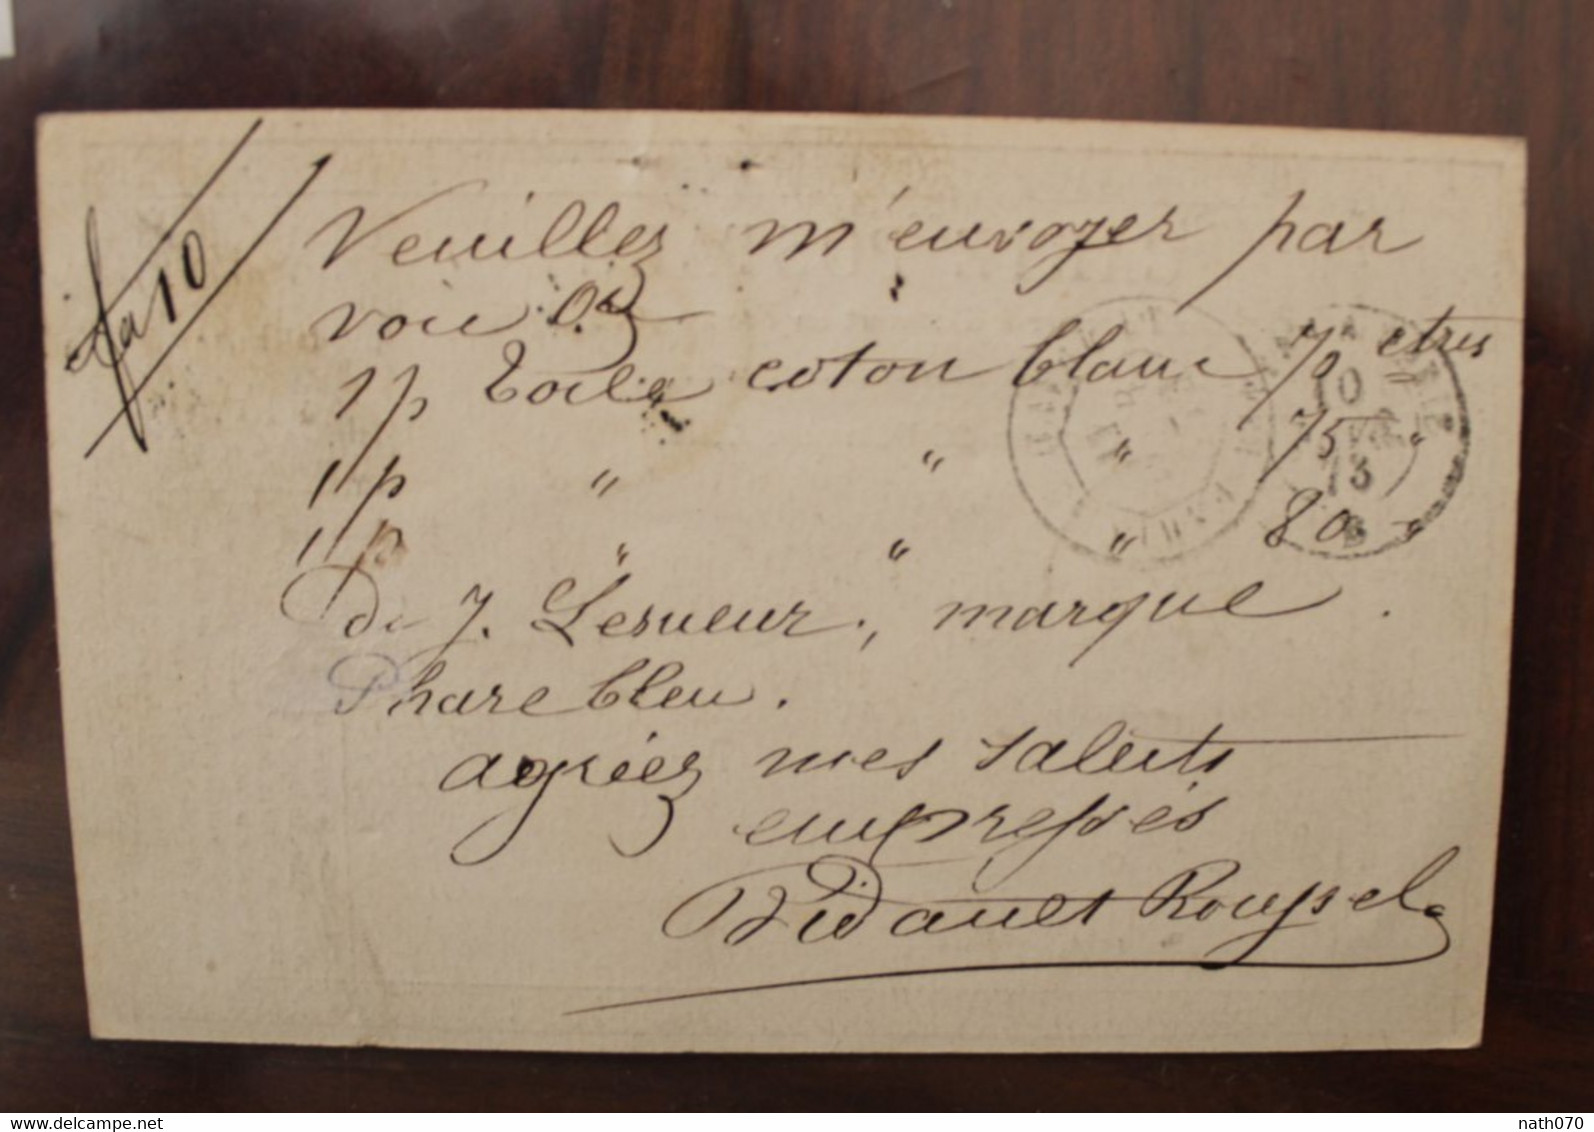 fa 10
Veuillez m'envoyer par
voie Od
1 p Toile coton blanc 70 ctres
1 p " " " 75 "
1 p " " " 80 "
de J. Lesueur, marque
Phare bleu.
agréez mes saluts
empressés
Vidauet Roussel
delcampe.net
nath070